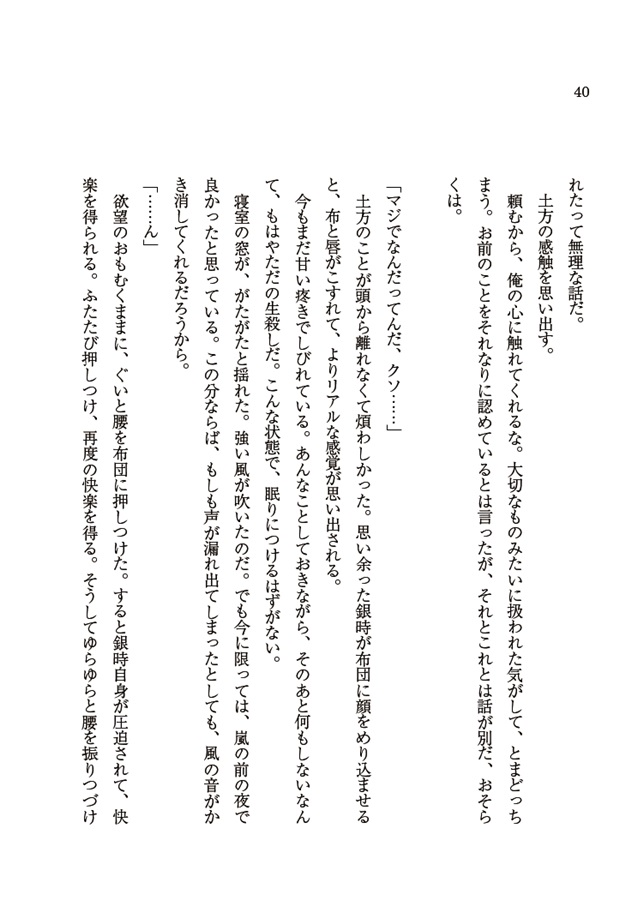 40
れたって無理な話だ。
土方の感触を思い出す。
頼むから、俺の心に触れてくれるな。大切なものみたいに扱われた気がして、とまどっち
まう。お前のことをそれなりに認めているとは言ったが、それとこれとは話が別だ、おそら
くは。
「マジでなんだってんだ、クソ……」
土方のことが頭から離れなくて煩わしかった。思い余った銀時が布団に顔をめり込ませる
と、布と唇がこすれて、よりリアルな感覚が思い出される。
今もまだ甘い疼きでしびれている。あんなことしておきながら、そのあと何もしないなん
て、もはやただの生殺しだ。こんな状態で、眠りにつけるはずがない。
寝室の窓が、がたがたと揺れた。強い風が吹いたのだ。でも今に限っては、嵐の前の夜で
良かったと思っている。この分ならば、もしも声が漏れ出てしまったとしても、風の音がか
き消してくれるだろうから。
「……ん」
欲望のおもむくままに、ぐいと腰を布団に押しつけた。すると銀時自身が圧迫されて、快
楽を得られる。ふたたび押しつけ、再度の快楽を得る。そうしてゆらゆらと腰を振りつづけ